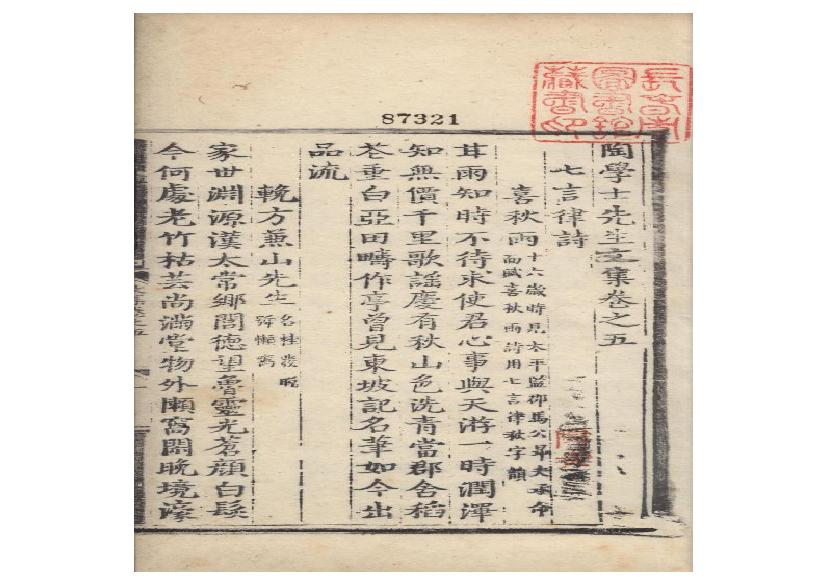 87321
陶學士先生文集卷之五
七言律詩
喜秋雨
十六歲時見太平監郡馬公昂夫承命
而賦喜秋雨詩用七言律秋字韻
甘雨知時不待求使君心事與天游一時潤澤
知無價千里歌謡慶有秋山色洗青當郡舍稻
花垂白亞田疇作亭曾見東坡記名筆如今出
品流
輓方蕙山先生
名桂發晚
號懶窩
家世淵源漢太常鄉閭德望魯靈光蒼顏白髮
今何處老竹枯芸尚滿堂物外懶窩閑晚境濠